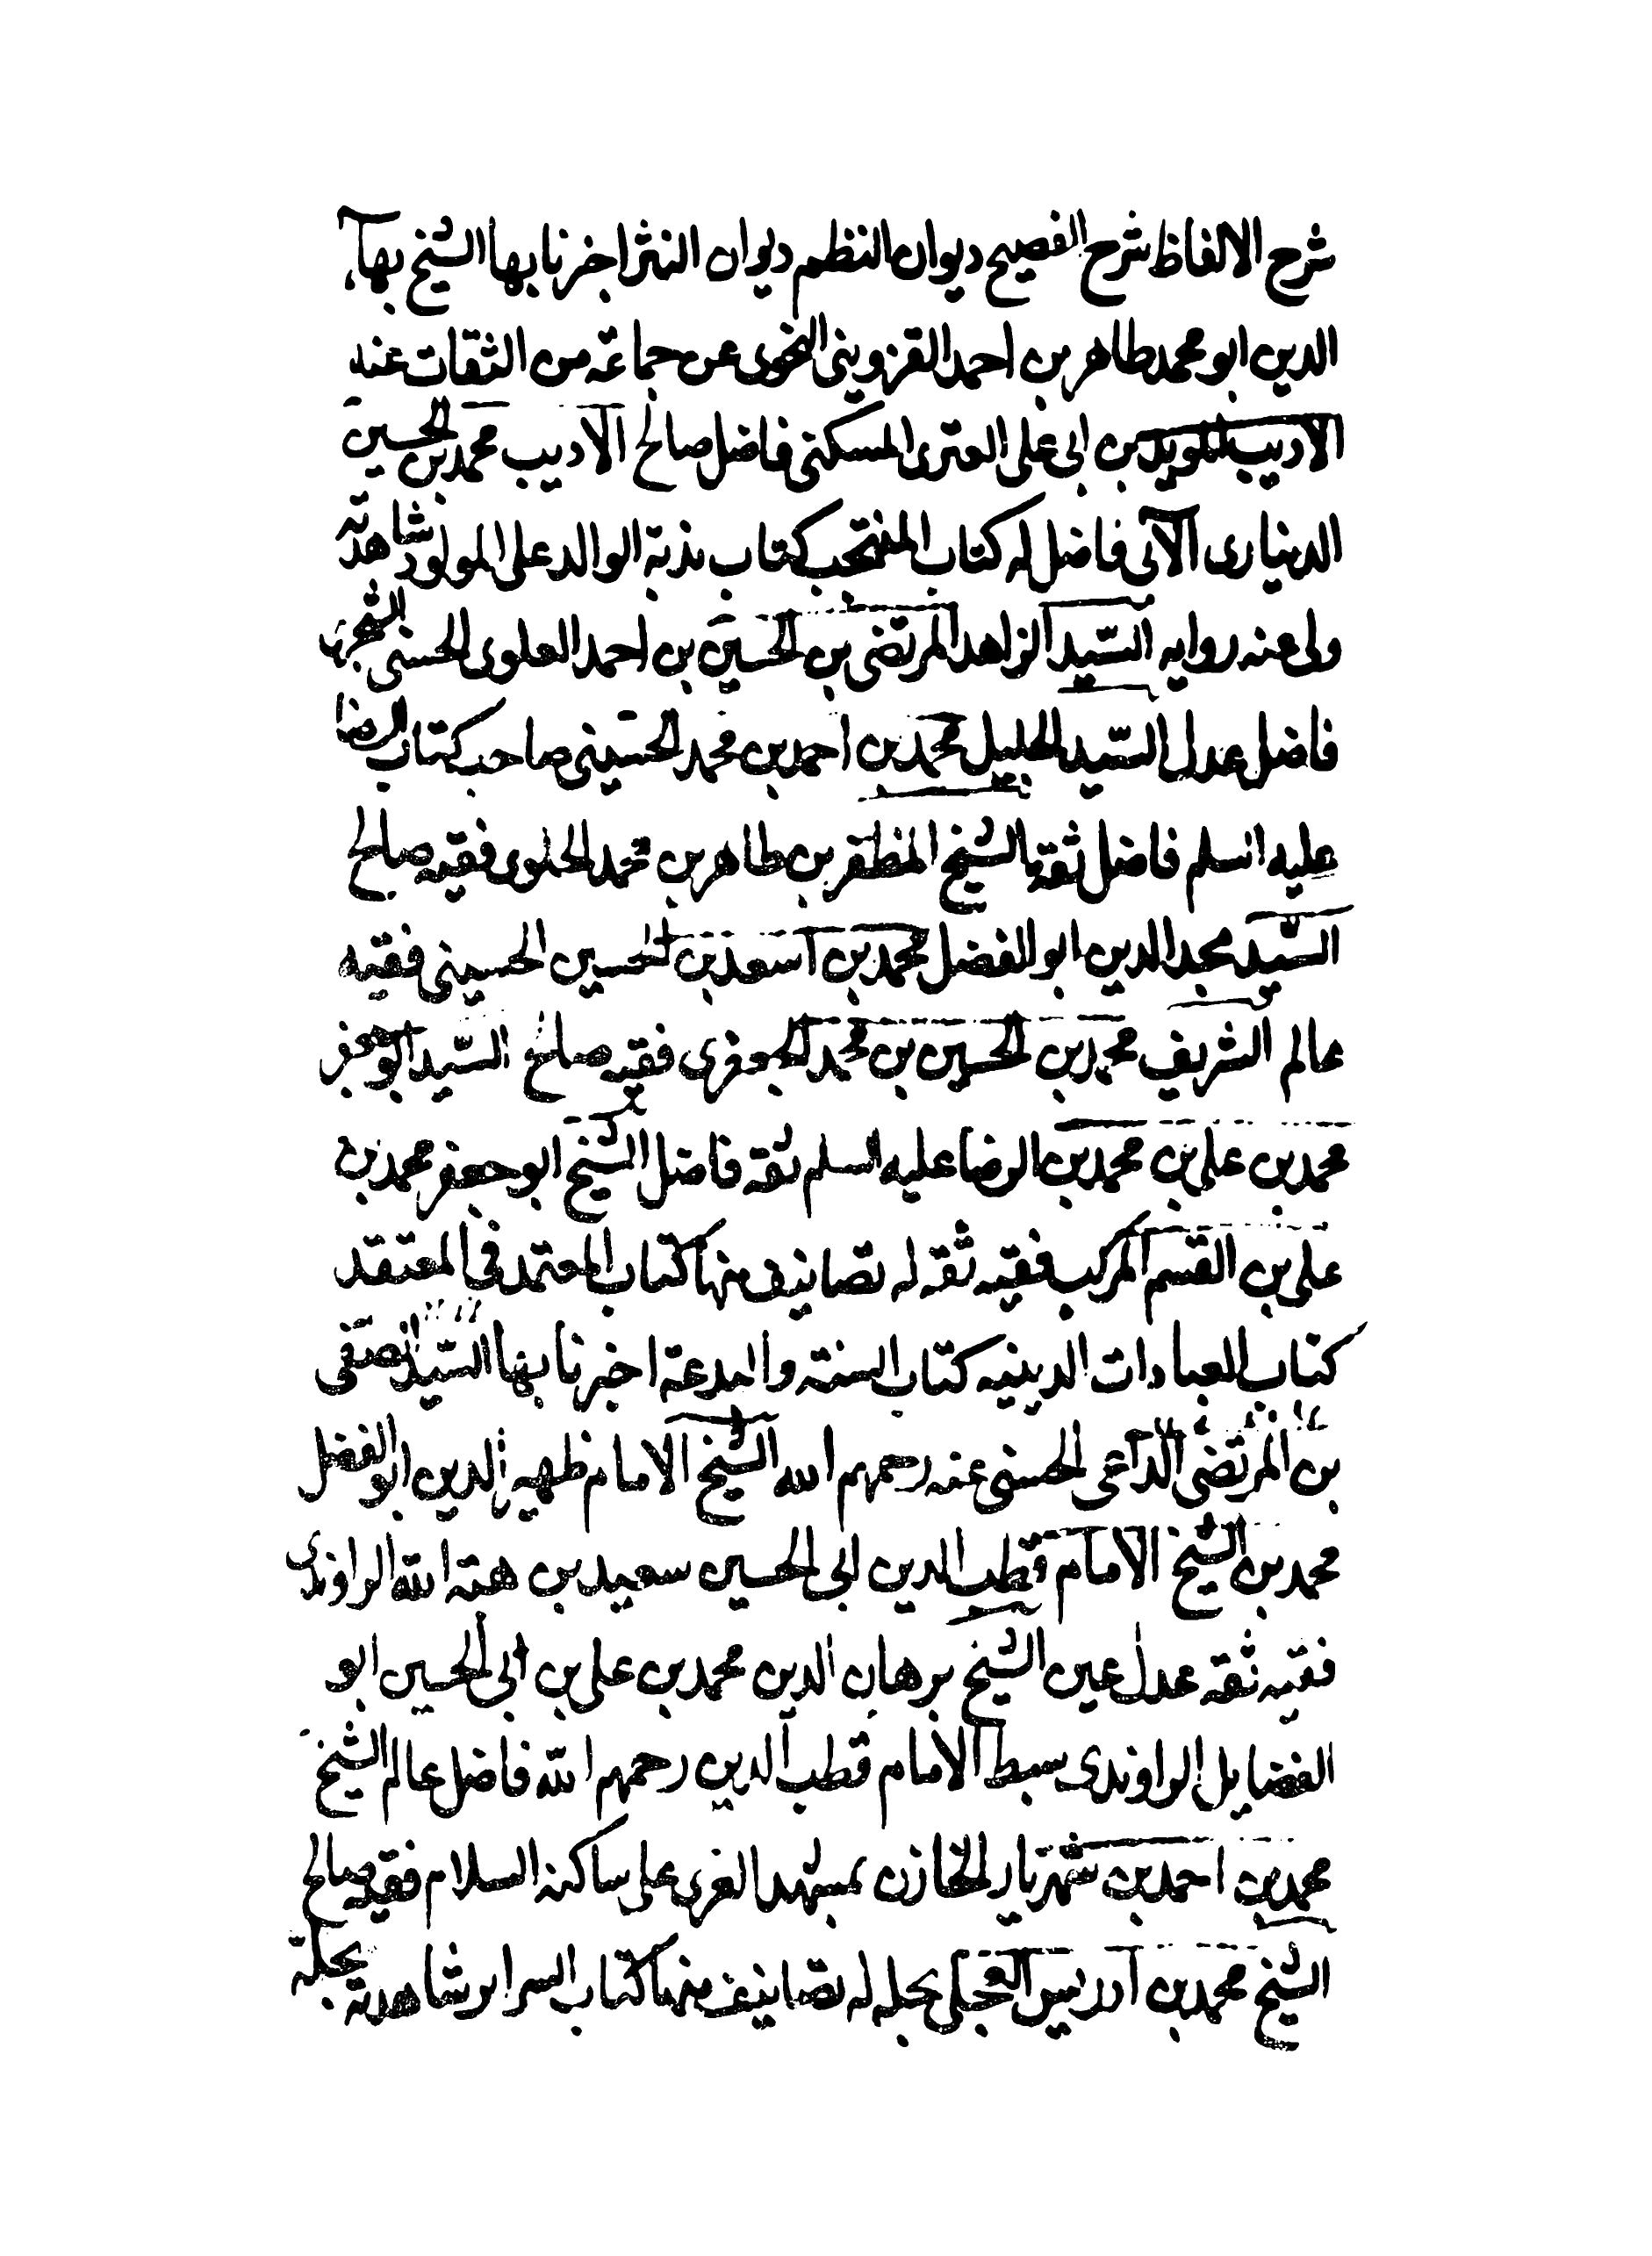 شرح الالفاظ شرح الفصيح ديوان النظم ديوان النثر اخبرنا بها الشيخ بهآء
الدين ابو محمد طاهر بن احمد القزوينى النحوى عن جماعة من الثقات عنه
الاديب المويد بن ابى على العترى المسكنى فاضل صالح الاديب محمد بن الحسين
الدينارى الآبى فاضل له كتاب المنتجب كتاب ندبة الوالد على المولود شاهدته
ولى عنه روايه السّيد الزاهد المرتضى بن الحسين بن احمد العلوى الحسنى الشجرى
فاضل عدل السّيد الجليل محمد بن احمد بن محمد الحسينى صاحب كتاب الرضا
عليه السلم فاضل ثقة الشيخ المظفر بن طاهر بن محمد الحلوى فقيه صالح
السّيد مجد الدين ابو الفضل محمد بن اسعد بن الحسين الحسينى فقيه
عالم الشريف محمد بن الحسين بن محمد الجعفرى فقيه صالح السّيد ابو جعفر
محمد بن على بن محمد بن الرضا عليه السلم ثقة فاضل الشيخ ابو جعفر محمد بن
على بن القسم المركب فقيه ثقه له تصانيف منها كتاب المعتمد فى المعتقد
كتاب العبادات الدينيه كتاب السنة والبدعة اخبرنا بها السّيد الصفى
بن المرتضى الداعى الحسنى عنه رحمهم الله الشيخ الامام ظهير الدين ابو الفضل
محمد بن الشيخ الامام قطب الدين ابى الحسين سعيد بن هبة الله الراوندى
فقيه ثقة عدل عين الشيخ برهان الدين محمد بن على بن ابى الحسين ابو
الفضايل الراوندى سبط الامام قطب الدين رحمهم الله فاضل عالم الشيخ
محمد بن احمد بن شهريار الخازن بمشهد الغرى على ساكنه السلام فقيه صالح
الشيخ محمد بن ادريس العجلى بحله له تصانيف منها كتاب السراير شاهدته بحلّة